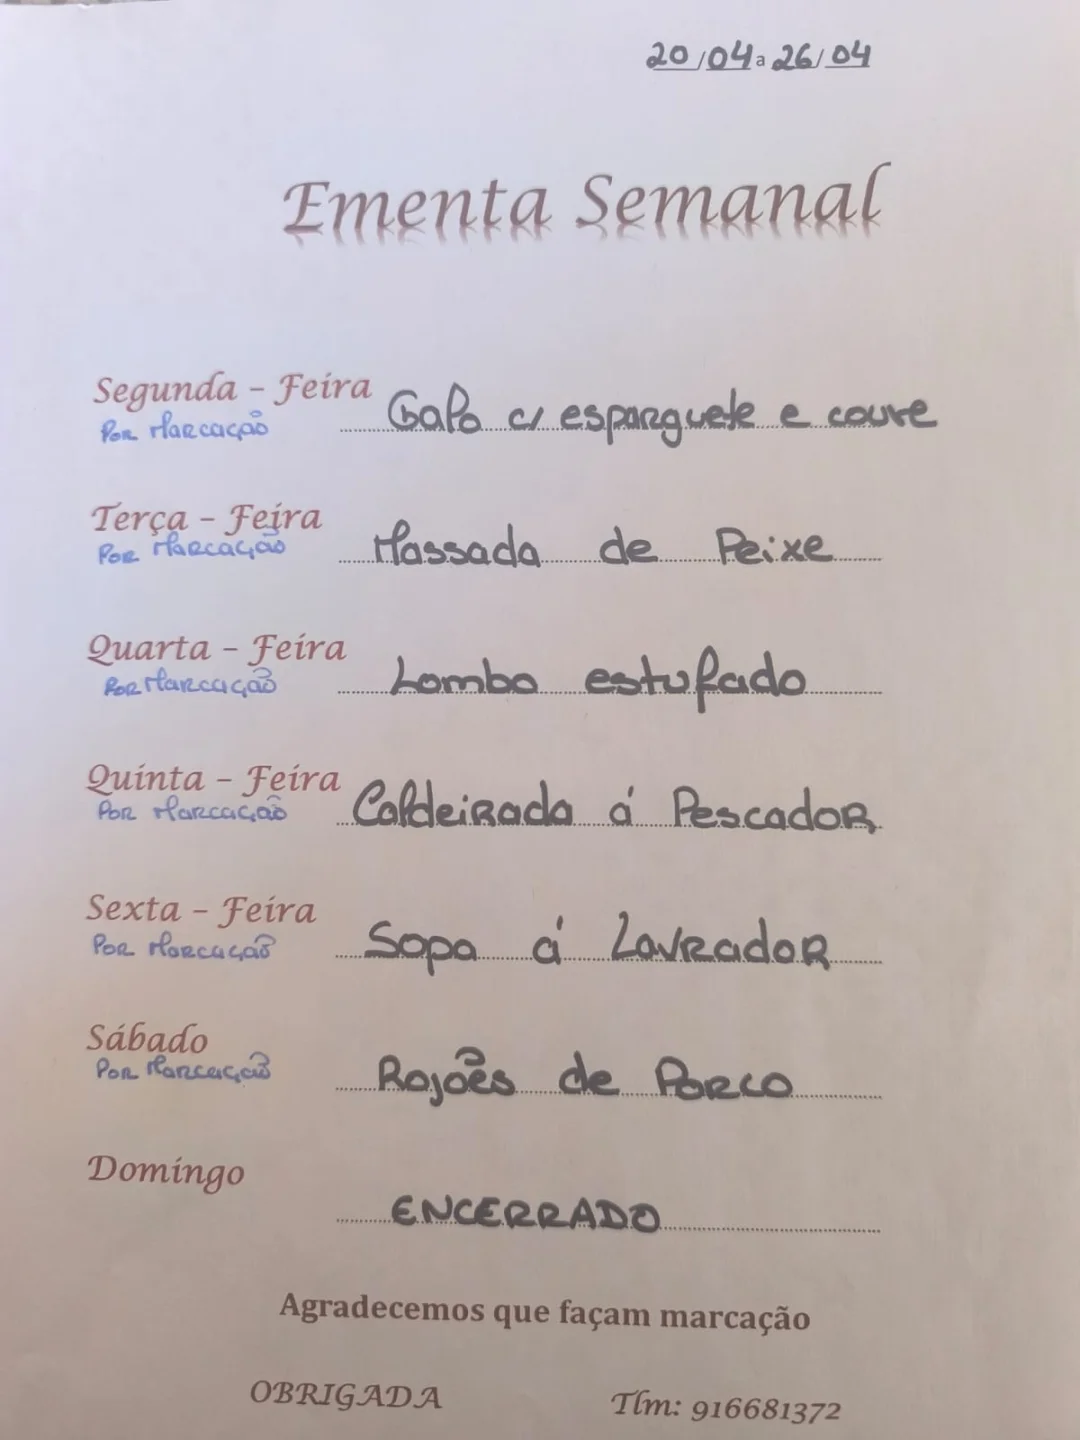 20/04 a 26/04
Ementa Semanal
Segunda - Feira
Por Marcação
Galo c/ esparguete e couve
Terça - Feira
Por Marcação
Massada de Peixe
Quarta - Feira
Por Marcação
Lombo estufado
Quinta - Feira
Por Marcação
Caldeirada á Pescador
Sexta - Feira
Por Marcação
Sopa á Lavrador
Sábado
Por Marcação
Rojões de Porco
Domingo
ENCERRADO
Agradecemos que façam marcação
OBRIGADA Tlm: 916681372